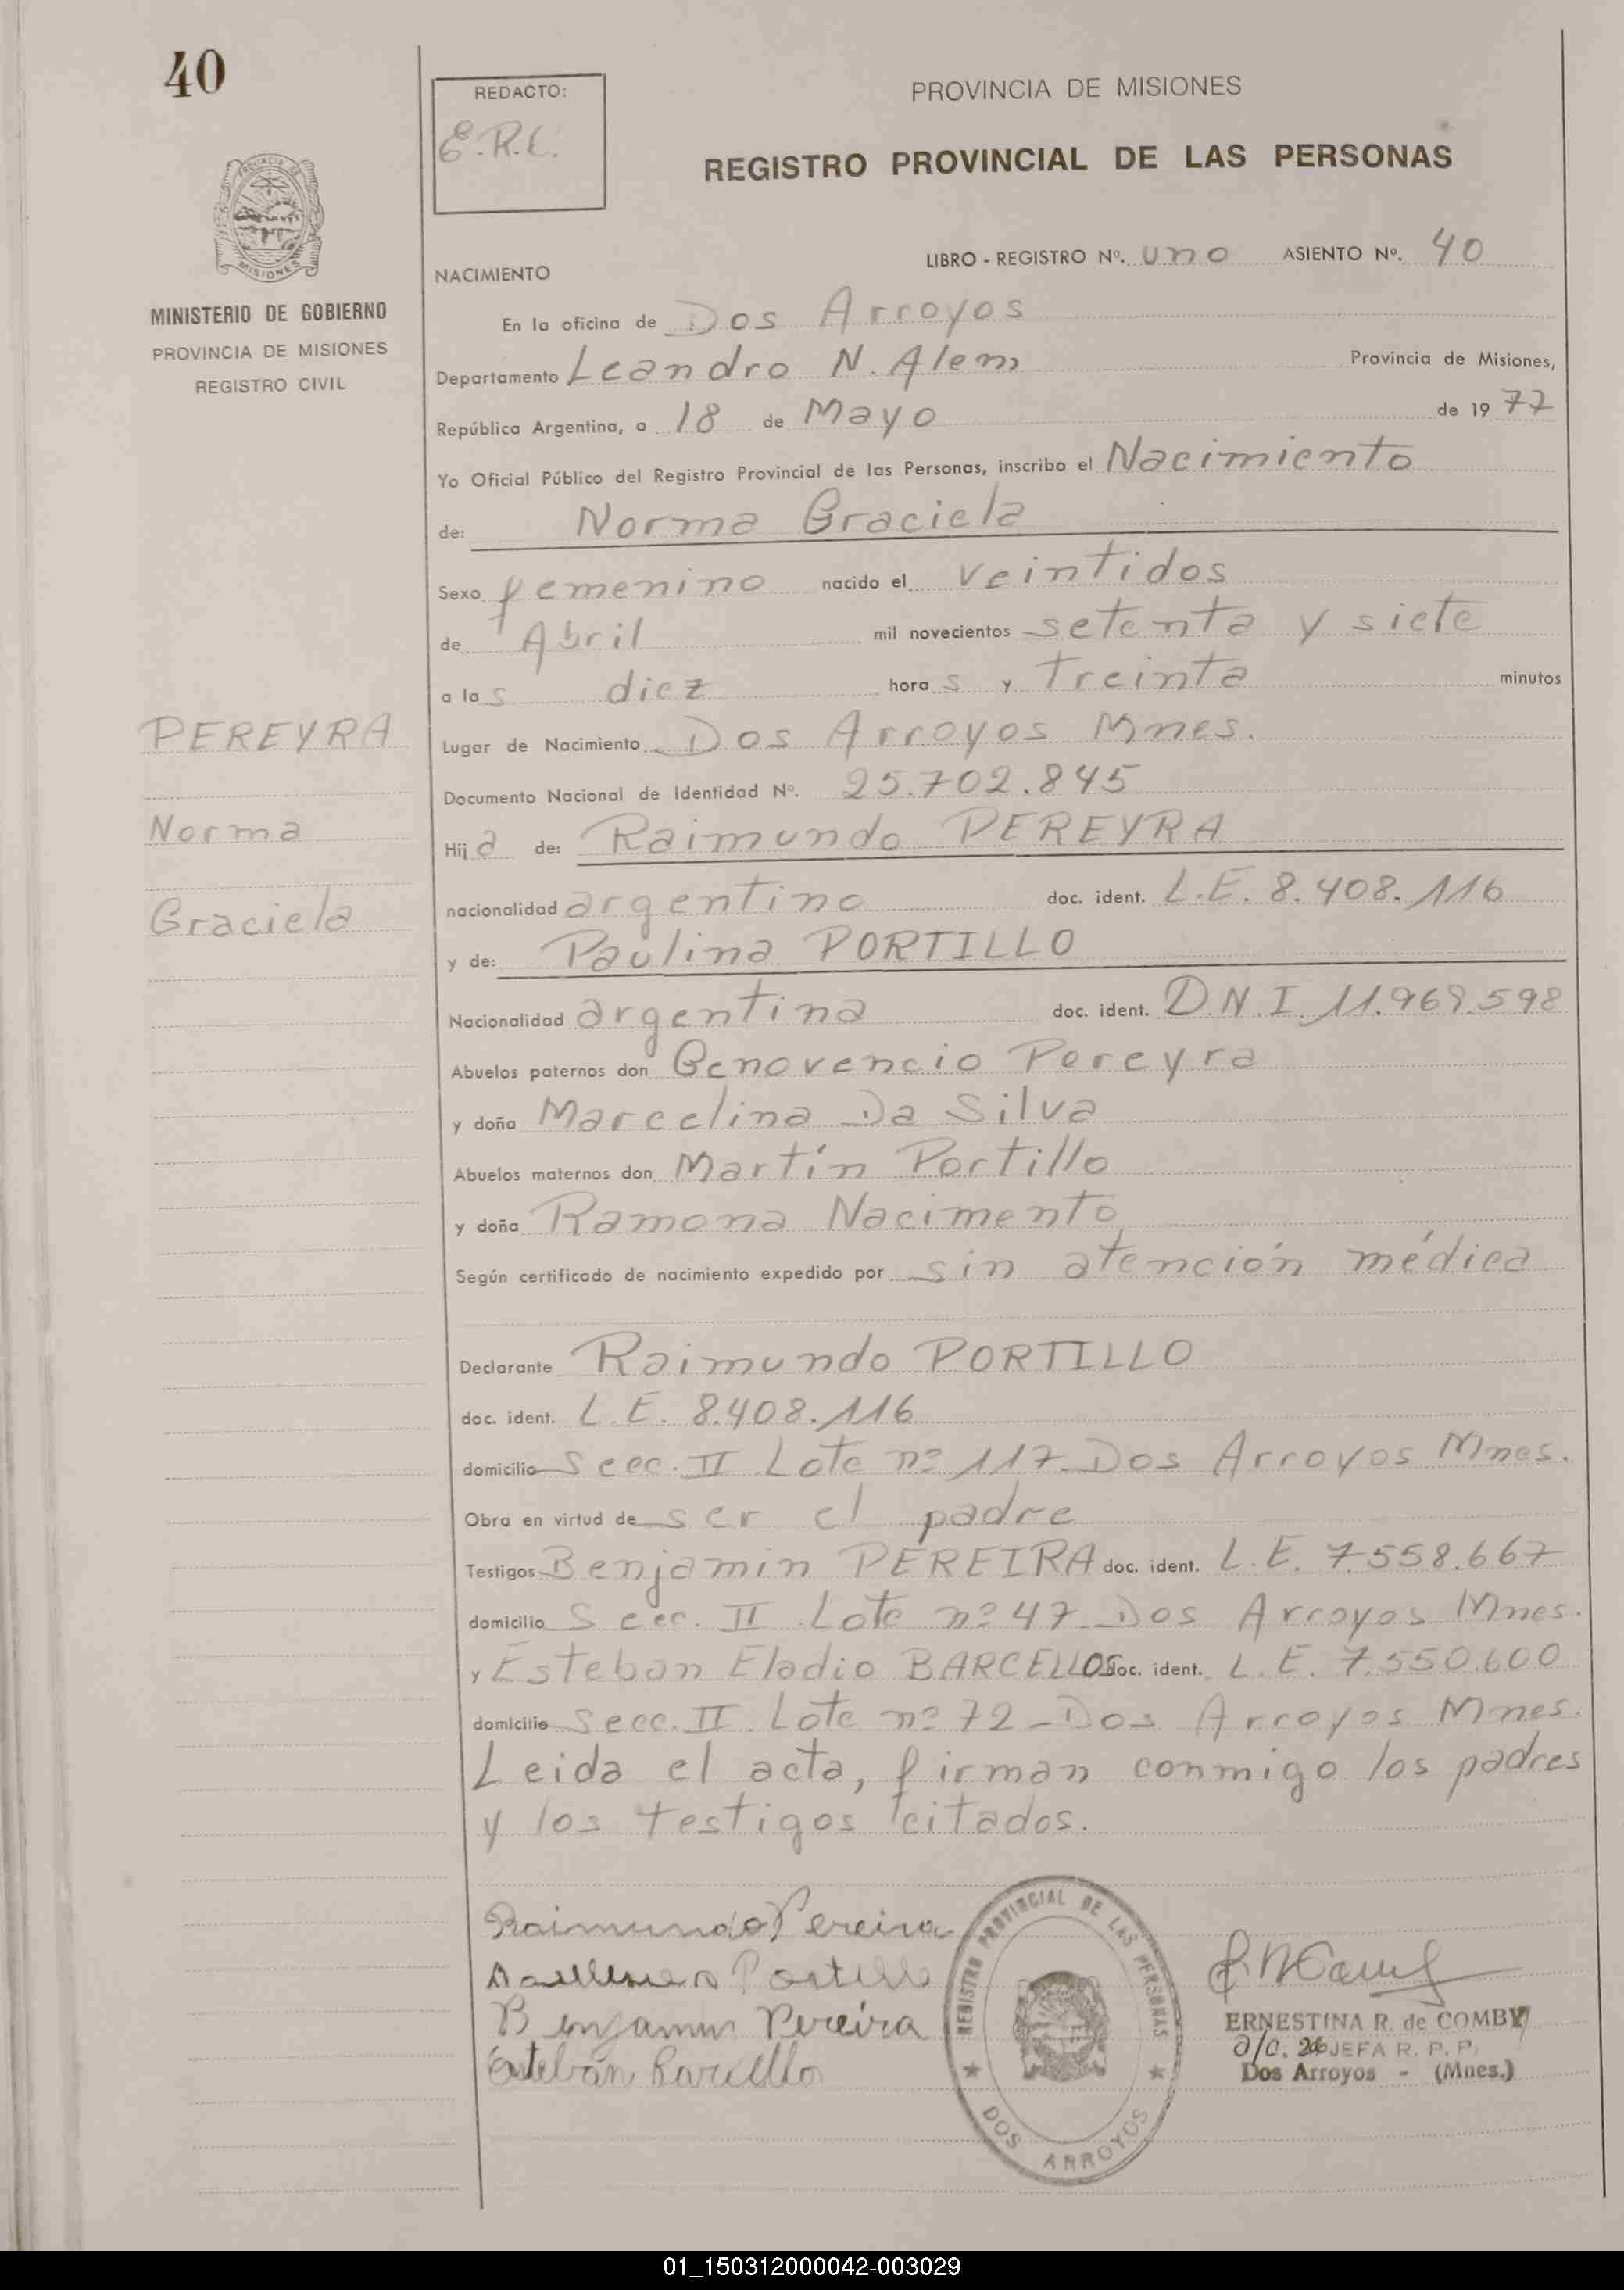 40
REDACTO:
E.R.C.
PROVINCIA DE MISIONES
REGISTRO PROVINCIAL DE LAS PERSONAS
LIBRO - REGISTRO Nº. uno ASIENTO Nº. 40
NACIMIENTO
MINISTERIO DE GOBIERNO
PROVINCIA DE MISIONES
REGISTRO CIVIL
En la oficina de Dos Arroyos
Departamento Leandro N. Alem Provincia de Misiones,
República Argentina, a 18 de Mayo de 1977
Yo Oficial Público del Registro Provincial de las Personas, inscribo el Nacimiento
de: Norma Graciela
Sexo femenino nacido el veintidos
de Abril mil novecientos setenta y siete
a las diez horas y Treinta minutos
PEREYRA
Norma
Graciela
Lugar de Nacimiento Dos Arroyos Mnes.
Documento Nacional de Identidad Nº. 25.702.845
Hija de: Raimundo PEREYRA
nacionalidad argentino doc. ident. L.E. 8.408.116
y de: Paulina PORTILLO
Nacionalidad argentina doc. ident. D.N.I. 11.969.598
Abuelos paternos don Genovencio Pereyra
y doña Marcelina Da Silva
Abuelos maternos don Martín Portillo
y doña Ramona Nacimento
Según certificado de nacimiento expedido por sin atención médica
Declarante Raimundo PORTILLO
doc. ident. L.E. 8.408.116
domicilio Secc. II Lote nº 117. Dos Arroyos Mnes.
Obra en virtud de ser el padre
Testigos Benjamin PEREIRA doc. ident. L.E. 7.558.667
domicilio Secc. II Lote nº 47 Dos Arroyos Mnes.
y Esteban Eladio BARCELLOS doc. ident. L.E. 7.550.600
domicilio Secc. II. Lote nº 72 - Dos Arroyos Mnes.
Leida el acta, firman conmigo los padres
y los testigos citados.
Raimundo Pereira
Portillo
Benjamin Pereira
Esteban Barcello
REGISTRO PROVINCIAL DE LAS PERSONAS
DOS ARROYOS
ERNESTINA R. de COMBY
a/c. JEFA R. P. P.
Dos Arroyos - (Mnes.)
01_150312000042-003029